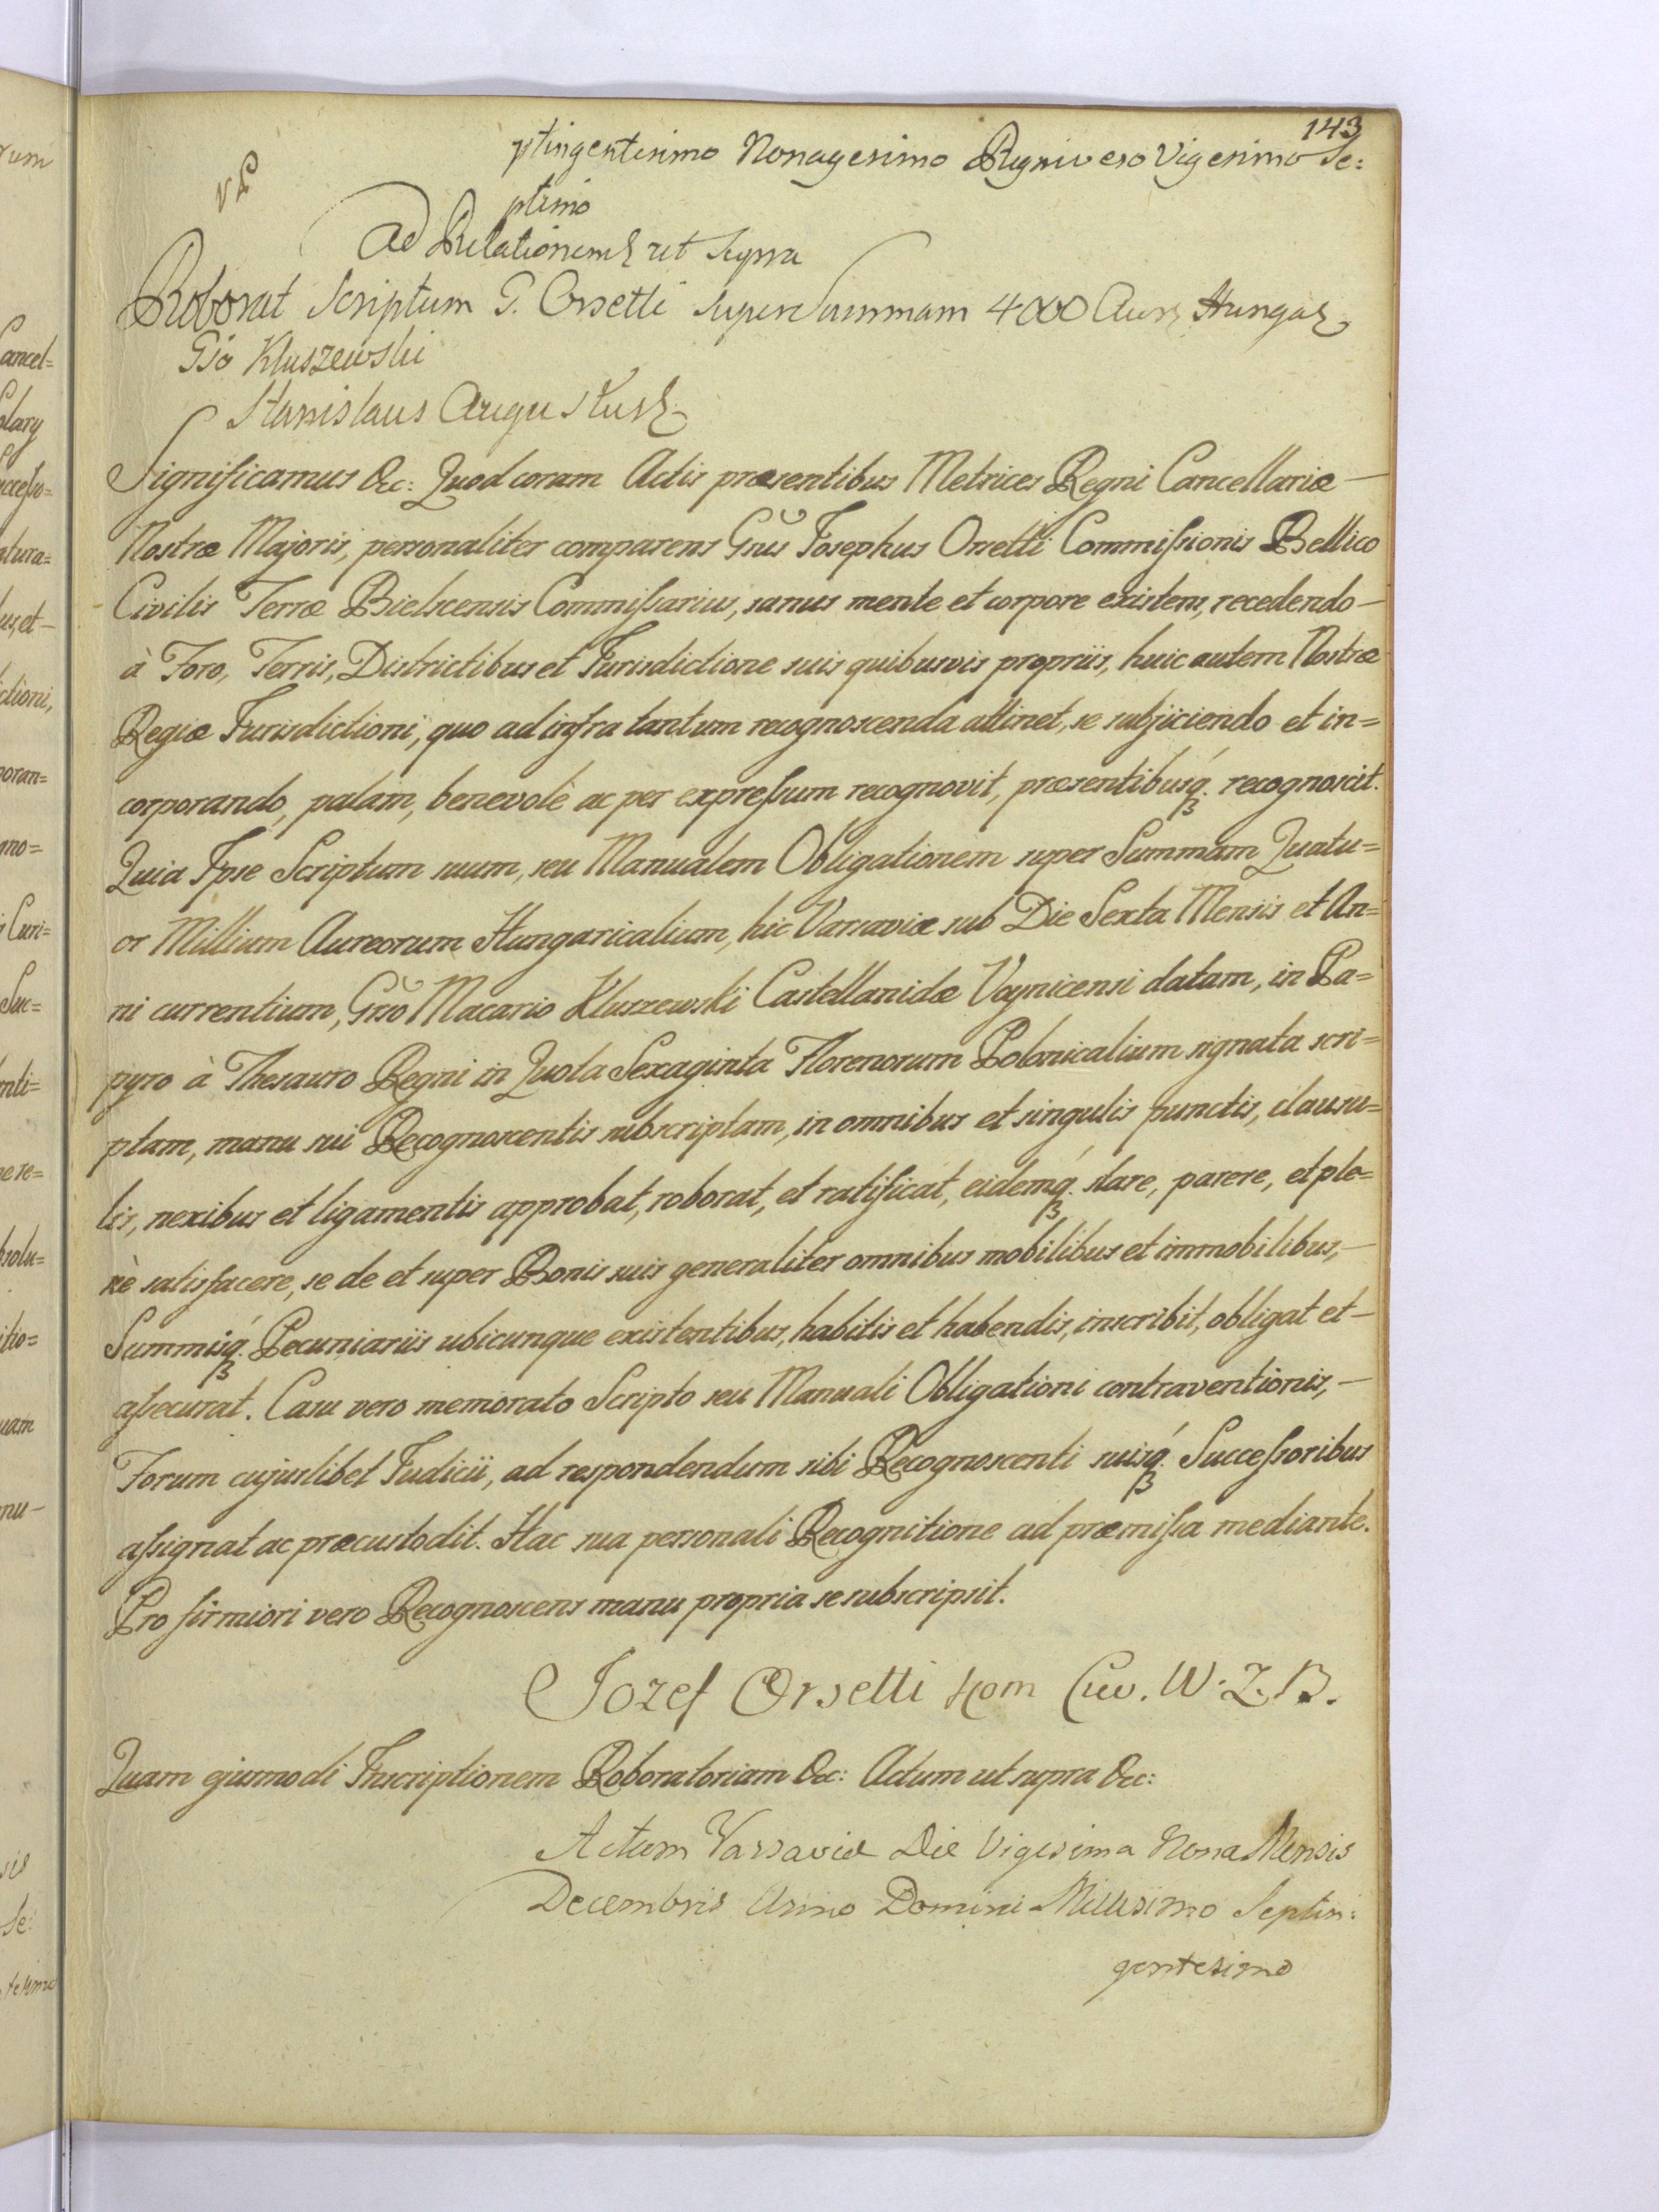 143
ptingentesimo Nonagesimo Regni vero Vigesimo Se:
ptimo
Ad Relationem ut supra
Roborat Scriptum G. Orsetti super Summam 4000 Aur Hungar
Gso Kluszewski
Stanislaus Augustus
Significamus &c: Quod coram Actis præsentibus Metrices Regni Cancellariæ —
Nostræ Majoris, personaliter comparens Gnus Josephus Orsetti Commissionis Bellico
Civilis Terræ Bielscensis Commissarius, sanus mente et corpore existens, recedendo —
à Foro, Terris, Districtibus et Jurisdictione suis quibusvis propriis, huic autem Nostræ
Regiæ Jurisdictioni, quo ad infra tantum recognoscenda attinet, se subjiciendo et in=
corporando, palam, benevolè ac per expressum recognovit, præsentibusq. recognoscit.
Quia Ipse Scriptum suum, seu Manualem Obligationem super Summam Quatu=
or Millium Aureorum Hungaricalium, hic Varsaviæ sub Die Sexta Mensis et An=
ni currentium, Gso Macario Kluszewski Castellanidæ Voynicensi datam, in Pa=
pyro à Thesauro Regni in Quota Sexaginta Florenorum Polonicalium signata scri=
ptam, manu sui Recognoscentis subscriptam, in omnibus et singulis punctis, clausu=
lis, nexibus et ligamentis approbat, roborat, et ratificat, eidemq. stare, parere, et ple=
nè satisfacere, se de et super Bonis suis generaliter omnibus mobilibus et immobilibus, —
Summisq. Pecuniariis ubicunque existentibus, habitis et habendis, inscribit, obligat et —
assecurat. Casu vero memorato Scripto seu Manuali Obligationi contraventionis, —
Forum cujuslibet Judicii, ad respondendum sibi Recognoscenti suisq. Successoribus
assignat ac præcustodit. Hac sua personali Recognitione ad præmissa mediante.
Pro firmiori vero Recognoscens manu propria se subscripsit.
Jozef Orsetti Kom Cuv. W. Z. B.
Quam ejusmodi Inscriptionem Roboratoriam &c: Actum ut supra &c:
Actum Varsaviæ Die Vigesima Nona Mensis
Decembris Anno Domini Millesimo Septin:
gentesimo